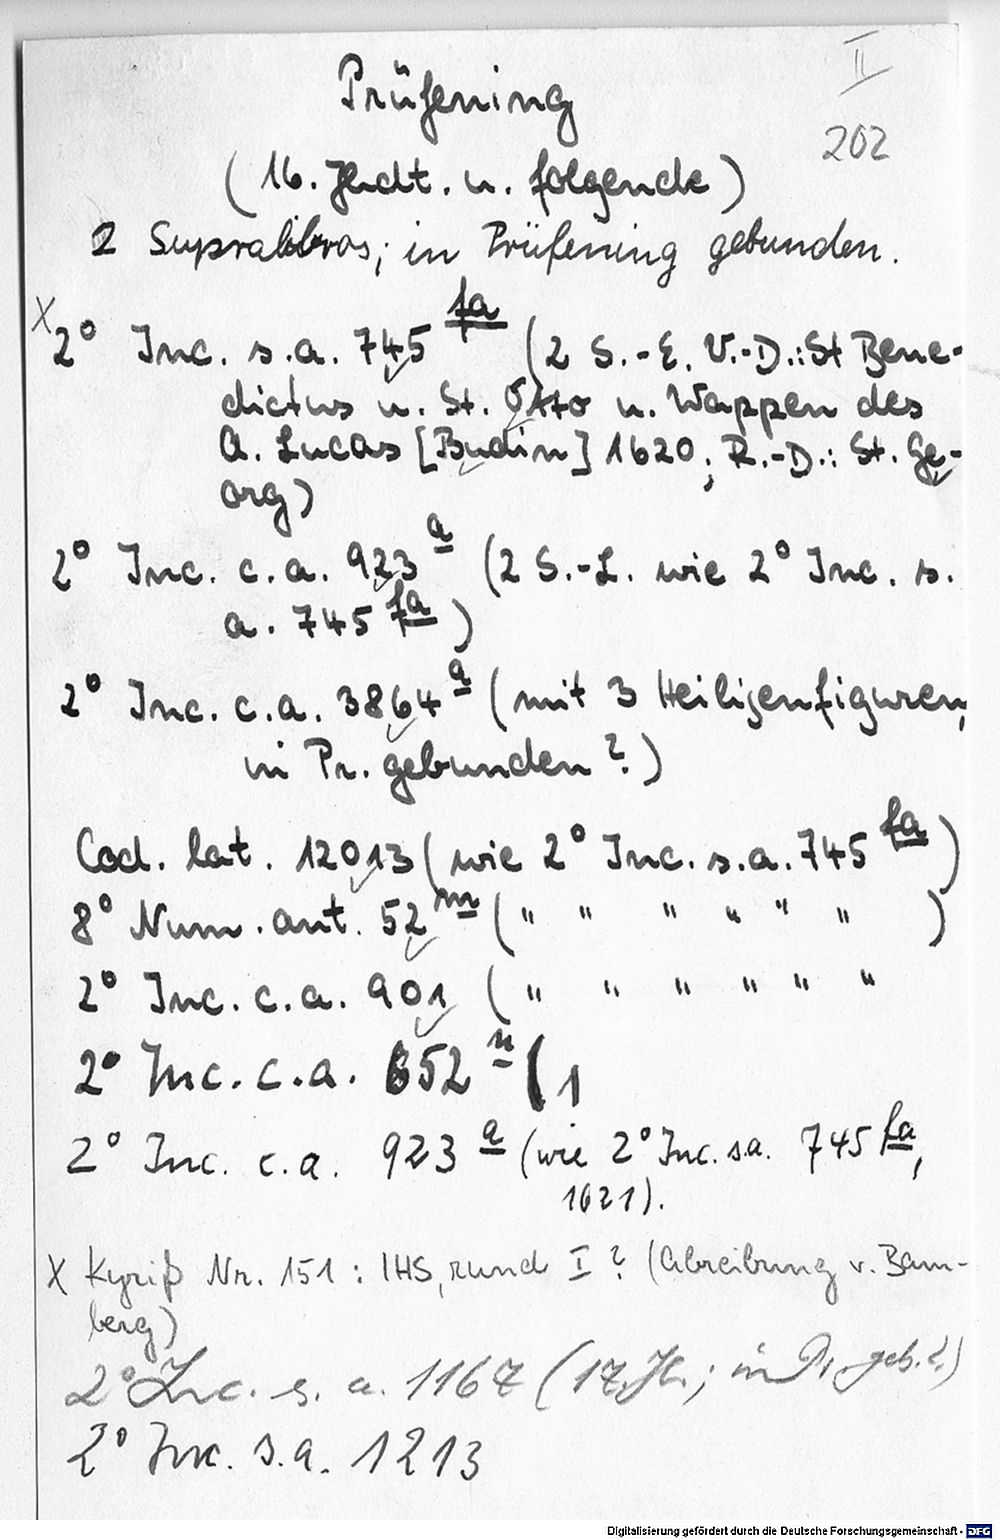 II
Prüfening
202
(16. Jhdt. u. folgende)
2 Supralibros; in Prüfening gebunden.
X 2° Inc. s.a. 745 fa (2 S.-E. V.-D.: St Bene-
dictus u. St. Otto u. Wappen des
A. Lucas [Budin] 1620; R.-D.: St. Ge-
org)
2° Inc. c.a. 923 a (2 S.-L. wie 2° Inc. s.
a. 745 fa)
2° Inc. c.a. 3864 a (mit 3 Heiligenfiguren,
in Pr. gebunden?)
Cod. lat. 12013 (wie 2° Inc. s.a. 745 fa)
8° Num. ant. 52 m (" " " " " " )
2° Inc. c.a. 901 (" " " " " "
2° Inc. c.a. 652 n (1
2° Inc. c.a. 923 a (wie 2° Inc. s.a. 745 fa,
1621).
X Kyriß Nr. 151: IHS, rund I? (Abreibung v. Bam-
berg)
2° Inc. s. a. 1167 (17. Jh.; in Pr. geb.?)
2° Inc. s.a. 1213
Digitalisierung gefördert durch die Deutsche Forschungsgemeinschaft - DFG